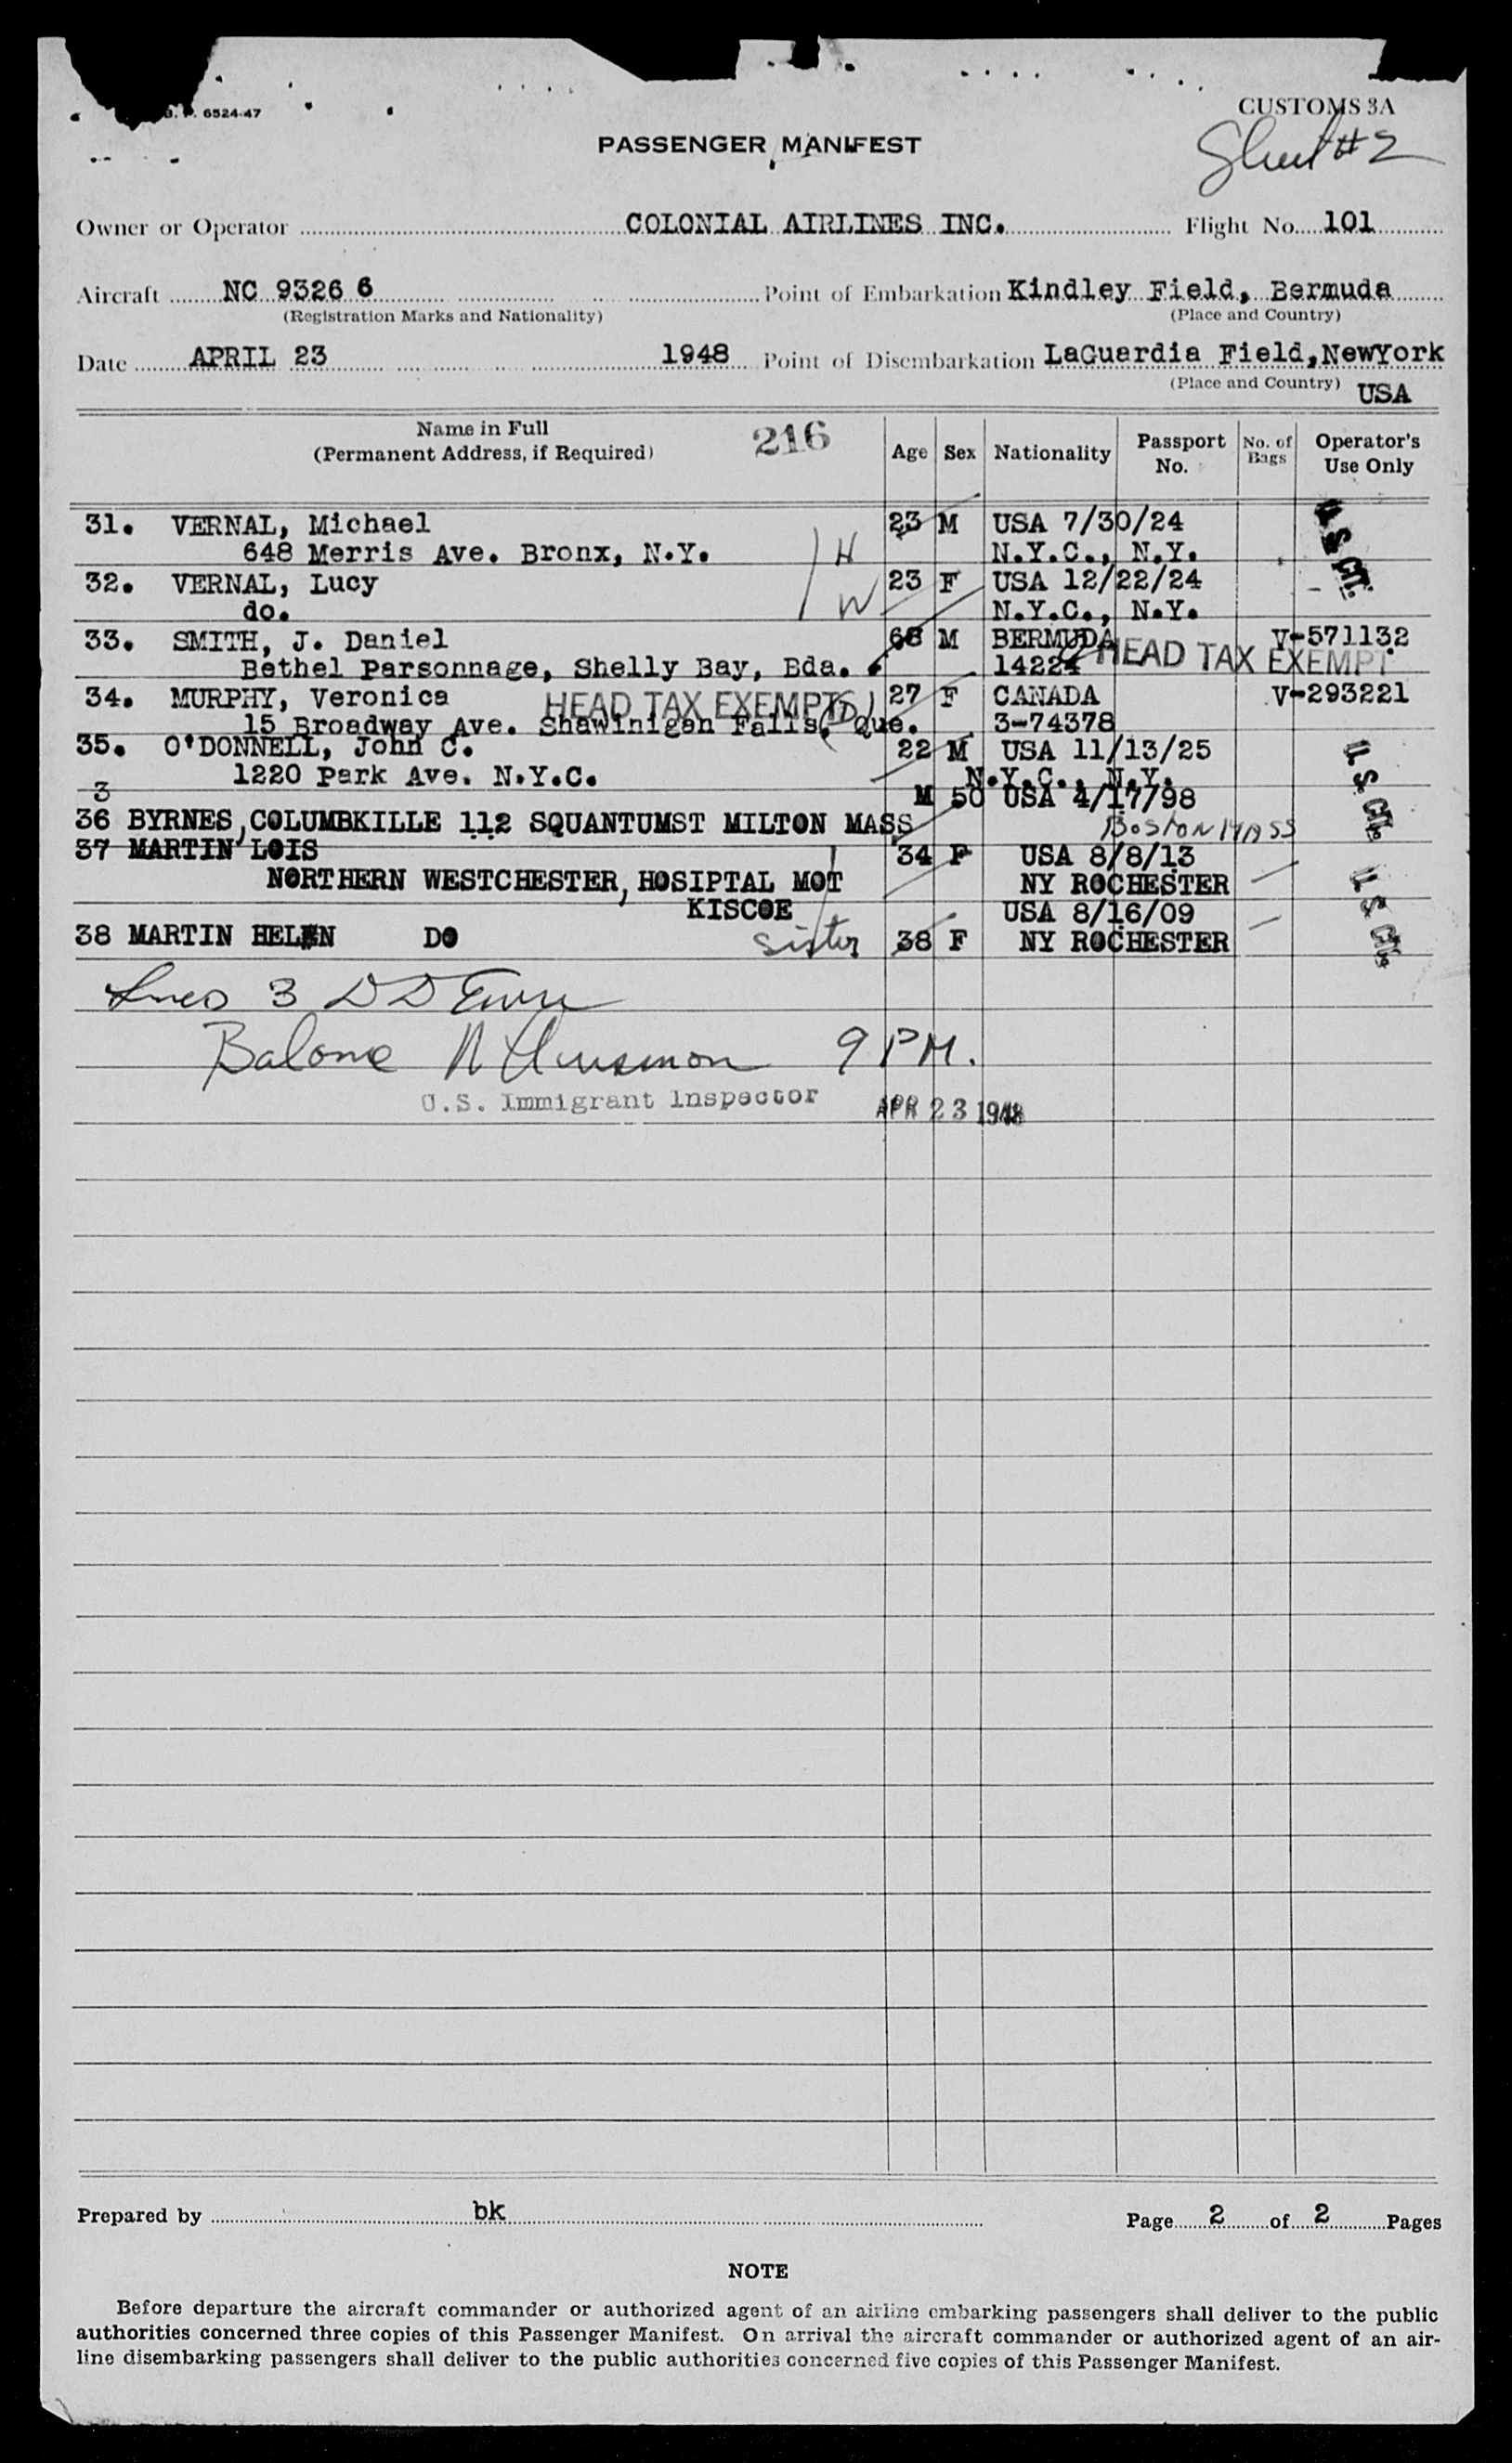 6524-47
CUSTOMS 3A
PASSENGER MANIFEST
Sheet #2
Owner or Operator COLONIAL AIRLINES INC. Flight No. 101
Aircraft NC 9326 6 Point of Embarkation Kindley Field, Bermuda
(Registration Marks and Nationality) (Place and Country)
Date APRIL 23 1948 Point of Disembarkation LaGuardia Field,NewYork
(Place and Country) USA
Name in Full
(Permanent Address, if Required) 216 Age Sex Nationality Passport No. No. of Bags Operator's Use Only
31. VERNAL, Michael 23 M USA 7/30/24 U.S. CIT.
648 Merris Ave. Bronx, N.Y. H N.Y.C., N.Y.
32. VERNAL, Lucy 23 F USA 12/22/24
do. W N.Y.C., N.Y.
33. SMITH, J. Daniel 68 M BERMUDA V-571132
Bethel Parsonnage, Shelly Bay, Bda. 14224 HEAD TAX EXEMPT
34. MURPHY, Veronica HEAD TAX EXEMPT 27 F CANADA V-293221
15 Broadway Ave. Shawinigan Falls, Que. 3-74378
35. O'DONNELL, John C. 22 M USA 11/13/25 U.S. CIT.
1220 Park Ave. N.Y.C. N.Y.C., N.Y.
3 M 50 USA 4/17/98
36 BYRNES,COLUMBKILLE 112 SQUANTUMST MILTON MASS BOSTON MASS
37 MARTIN LOIS 34 F USA 8/8/13
NORTHERN WESTCHESTER, HOSIPTAL MOT NY ROCHESTER U.S. CIT.
KISCOE USA 8/16/09
38 MARTIN HELEN DO sister 38 F NY ROCHESTER
9 PM.
U.S. Immigrant Inspector APR 23 1948
Prepared by bk Page 2 of 2 Pages
NOTE
Before departure the aircraft commander or authorized agent of an airline embarking passengers shall deliver to the public
authorities concerned three copies of this Passenger Manifest. On arrival the aircraft commander or authorized agent of an air-
line disembarking passengers shall deliver to the public authorities concerned five copies of this Passenger Manifest.